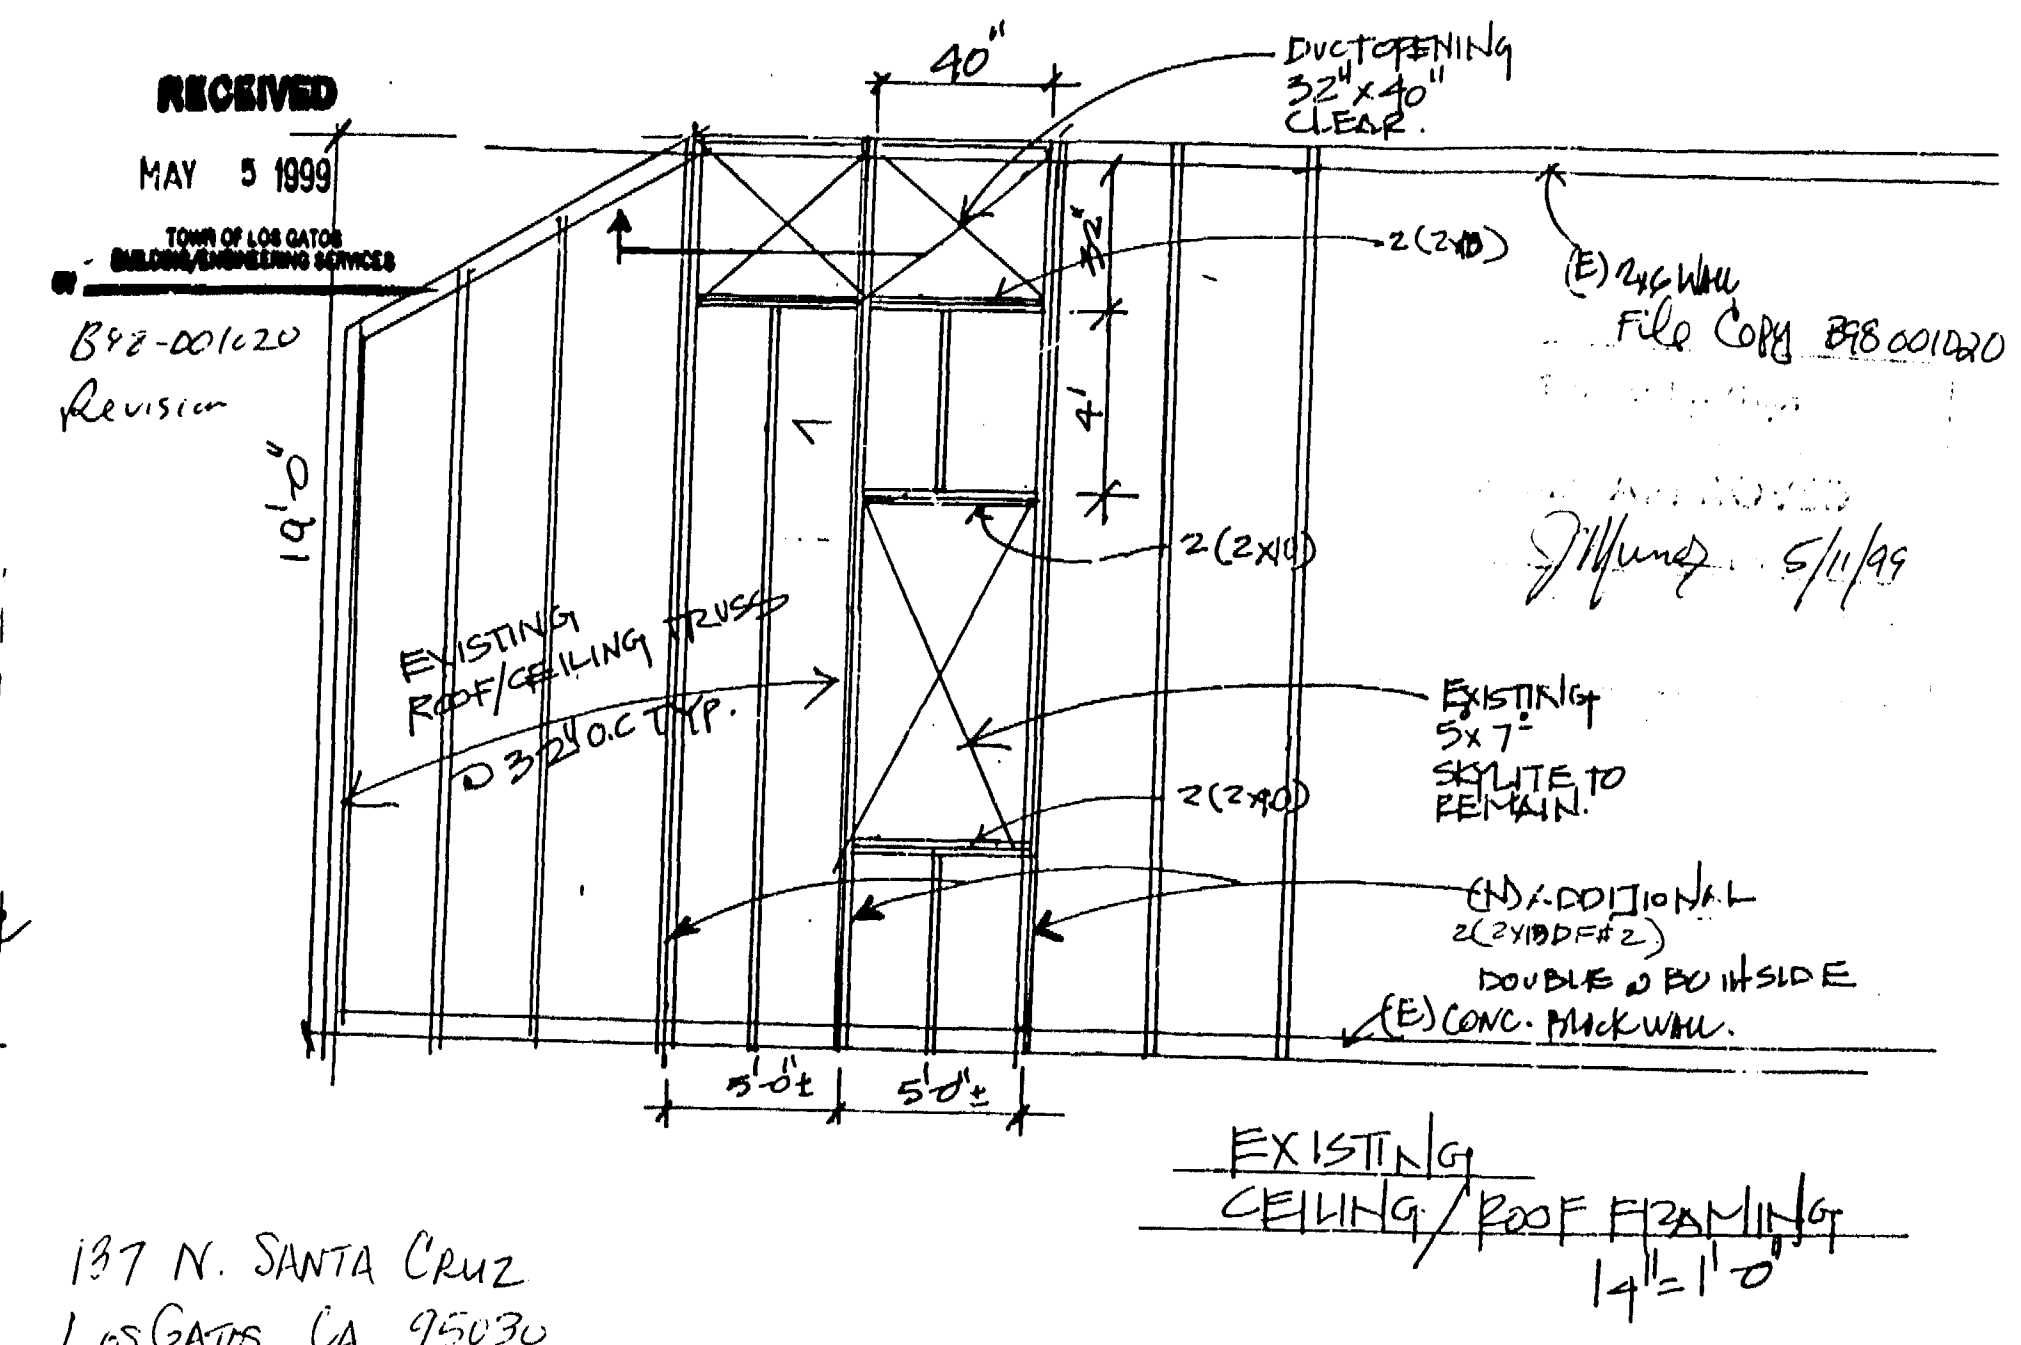 RECEIVED
MAY 5 1999
TOWN OF LOS GATOS
BUILDING/ENGINEERING SERVICES
BY
B98-001020
Revision
40"
DUCT OPENING
32" x 40"
CLEAR.
32"
(E) 2x6 WALL
File Copy B98 001020
4'
19'-0"
2(2x10)
5/11/99
EXISTING
ROOF/CEILING TRUSS
@ 32" O.C TYP.
EXISTING
5° x 7°
SKYLITE TO
REMAIN.
2(2x10)
(N) ADDITIONAL
DOUBLE @ BOTHSIDE
(E) CONC. BLOCK WALL.
5'-0"±
5'-0"±
EXISTING
CEILING/ROOF FRAMING
1/4"=1'-0"
137 N. SANTA CRUZ
LOS GATOS CA 95030